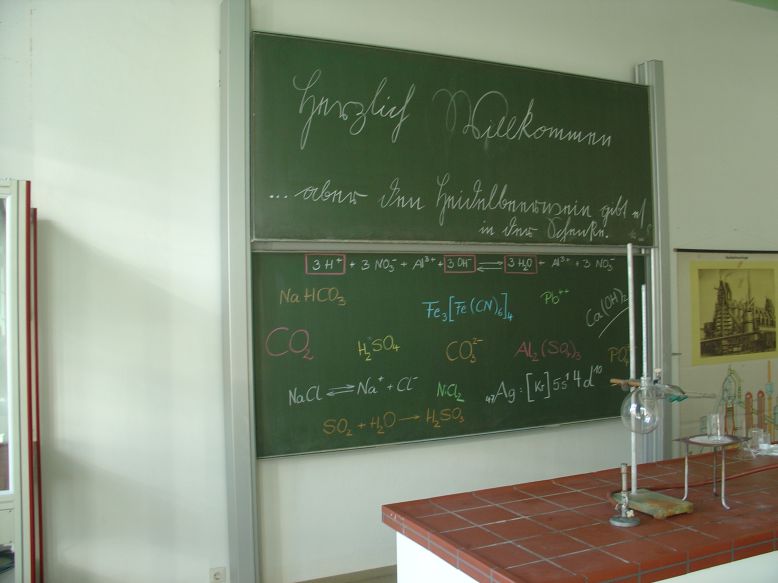 Herzlich Willkommen
... aber den Heidelbeerwein gibt es
in der Schenke.
3 H⁺ + 3 NO₃⁻ + Al³⁺ + 3 OH⁻ ⇌ 3 H₂O + Al³⁺ + 3 NO₃⁻
NaHCO₃ Fe₃[Fe(CN)₆]₄ Pb⁺⁺ Ca(OH)₂
CO₂ H₂SO₄ CO₃²⁻ Al₂(SO₄)₃ PO₄
NaCl ⇌ Na⁺ + Cl⁻ NiCl₂ ₄₇Ag: [Kr] 5s¹ 4d¹⁰
SO₂ + H₂O → H₂SO₃